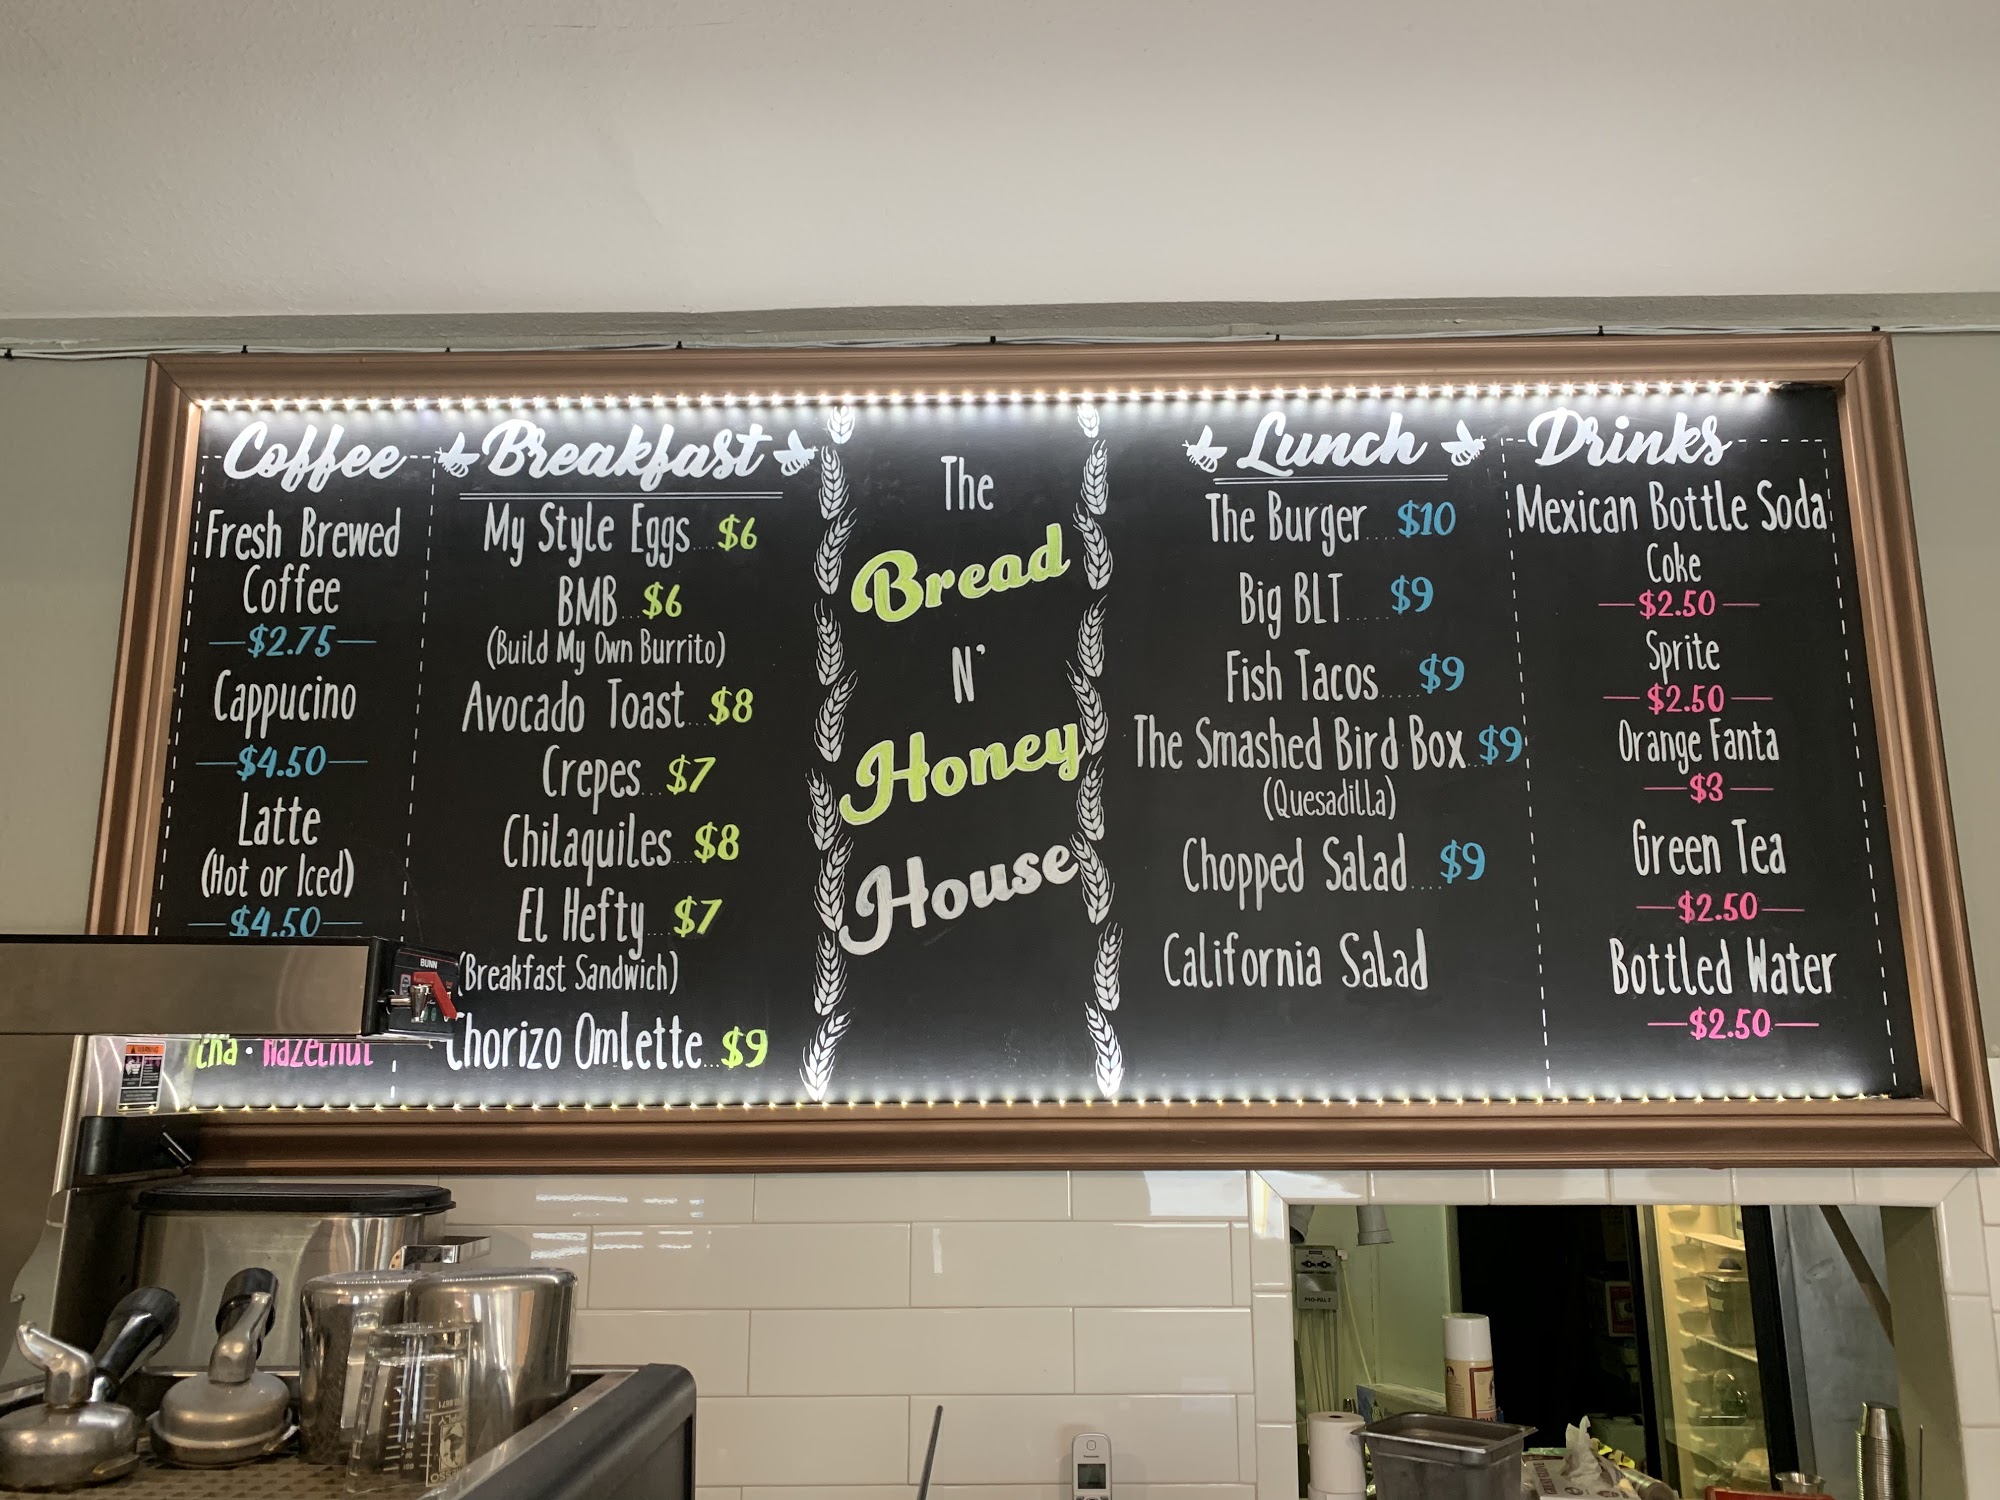 Coffee
Fresh Brewed
Coffee
$2.75
Cappucino
$4.50
Latte
(Hot or Iced)
$4.50
Hazelnut
Breakfast
My Style Eggs....$6
BMB...$6
(Build My Own Burrito)
Avocado Toast...$8
Crepes...$7
Chilaquiles...$8
El Hefty....$7
(Breakfast Sandwich)
Chorizo Omlette...$9
The
Bread
N'
Honey
House
Lunch
The Burger....$10
Big BLT.....$9
Fish Tacos.....$9
The Smashed Bird Box..$9
(Quesadilla)
Chopped Salad....$9
California Salad
Drinks
Mexican Bottle Soda
Coke
$2.50
Sprite
$2.50
Orange Fanta
$3
Green Tea
$2.50
Bottled Water
$2.50
BUNN
WARNING
Panasonic